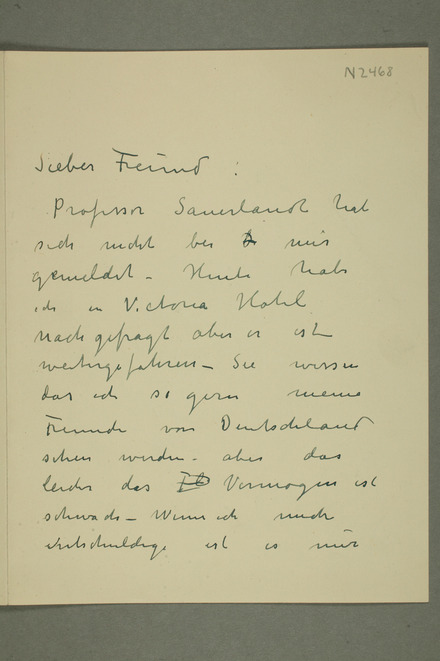 N2468
Lieber Freund :
Professor Sauerlandt hat
sich nicht bei mir
gemeldet – Heute habe
ich in Victoria Hotel
nachgefragt aber er ist
weitergefahren – Sie wissen
das ich so gern meine
Freunde von Deutschland
sehen würde – aber das
leider das Vermogen ist
schwach – Wenn ich mich
entschuldige ist es mir